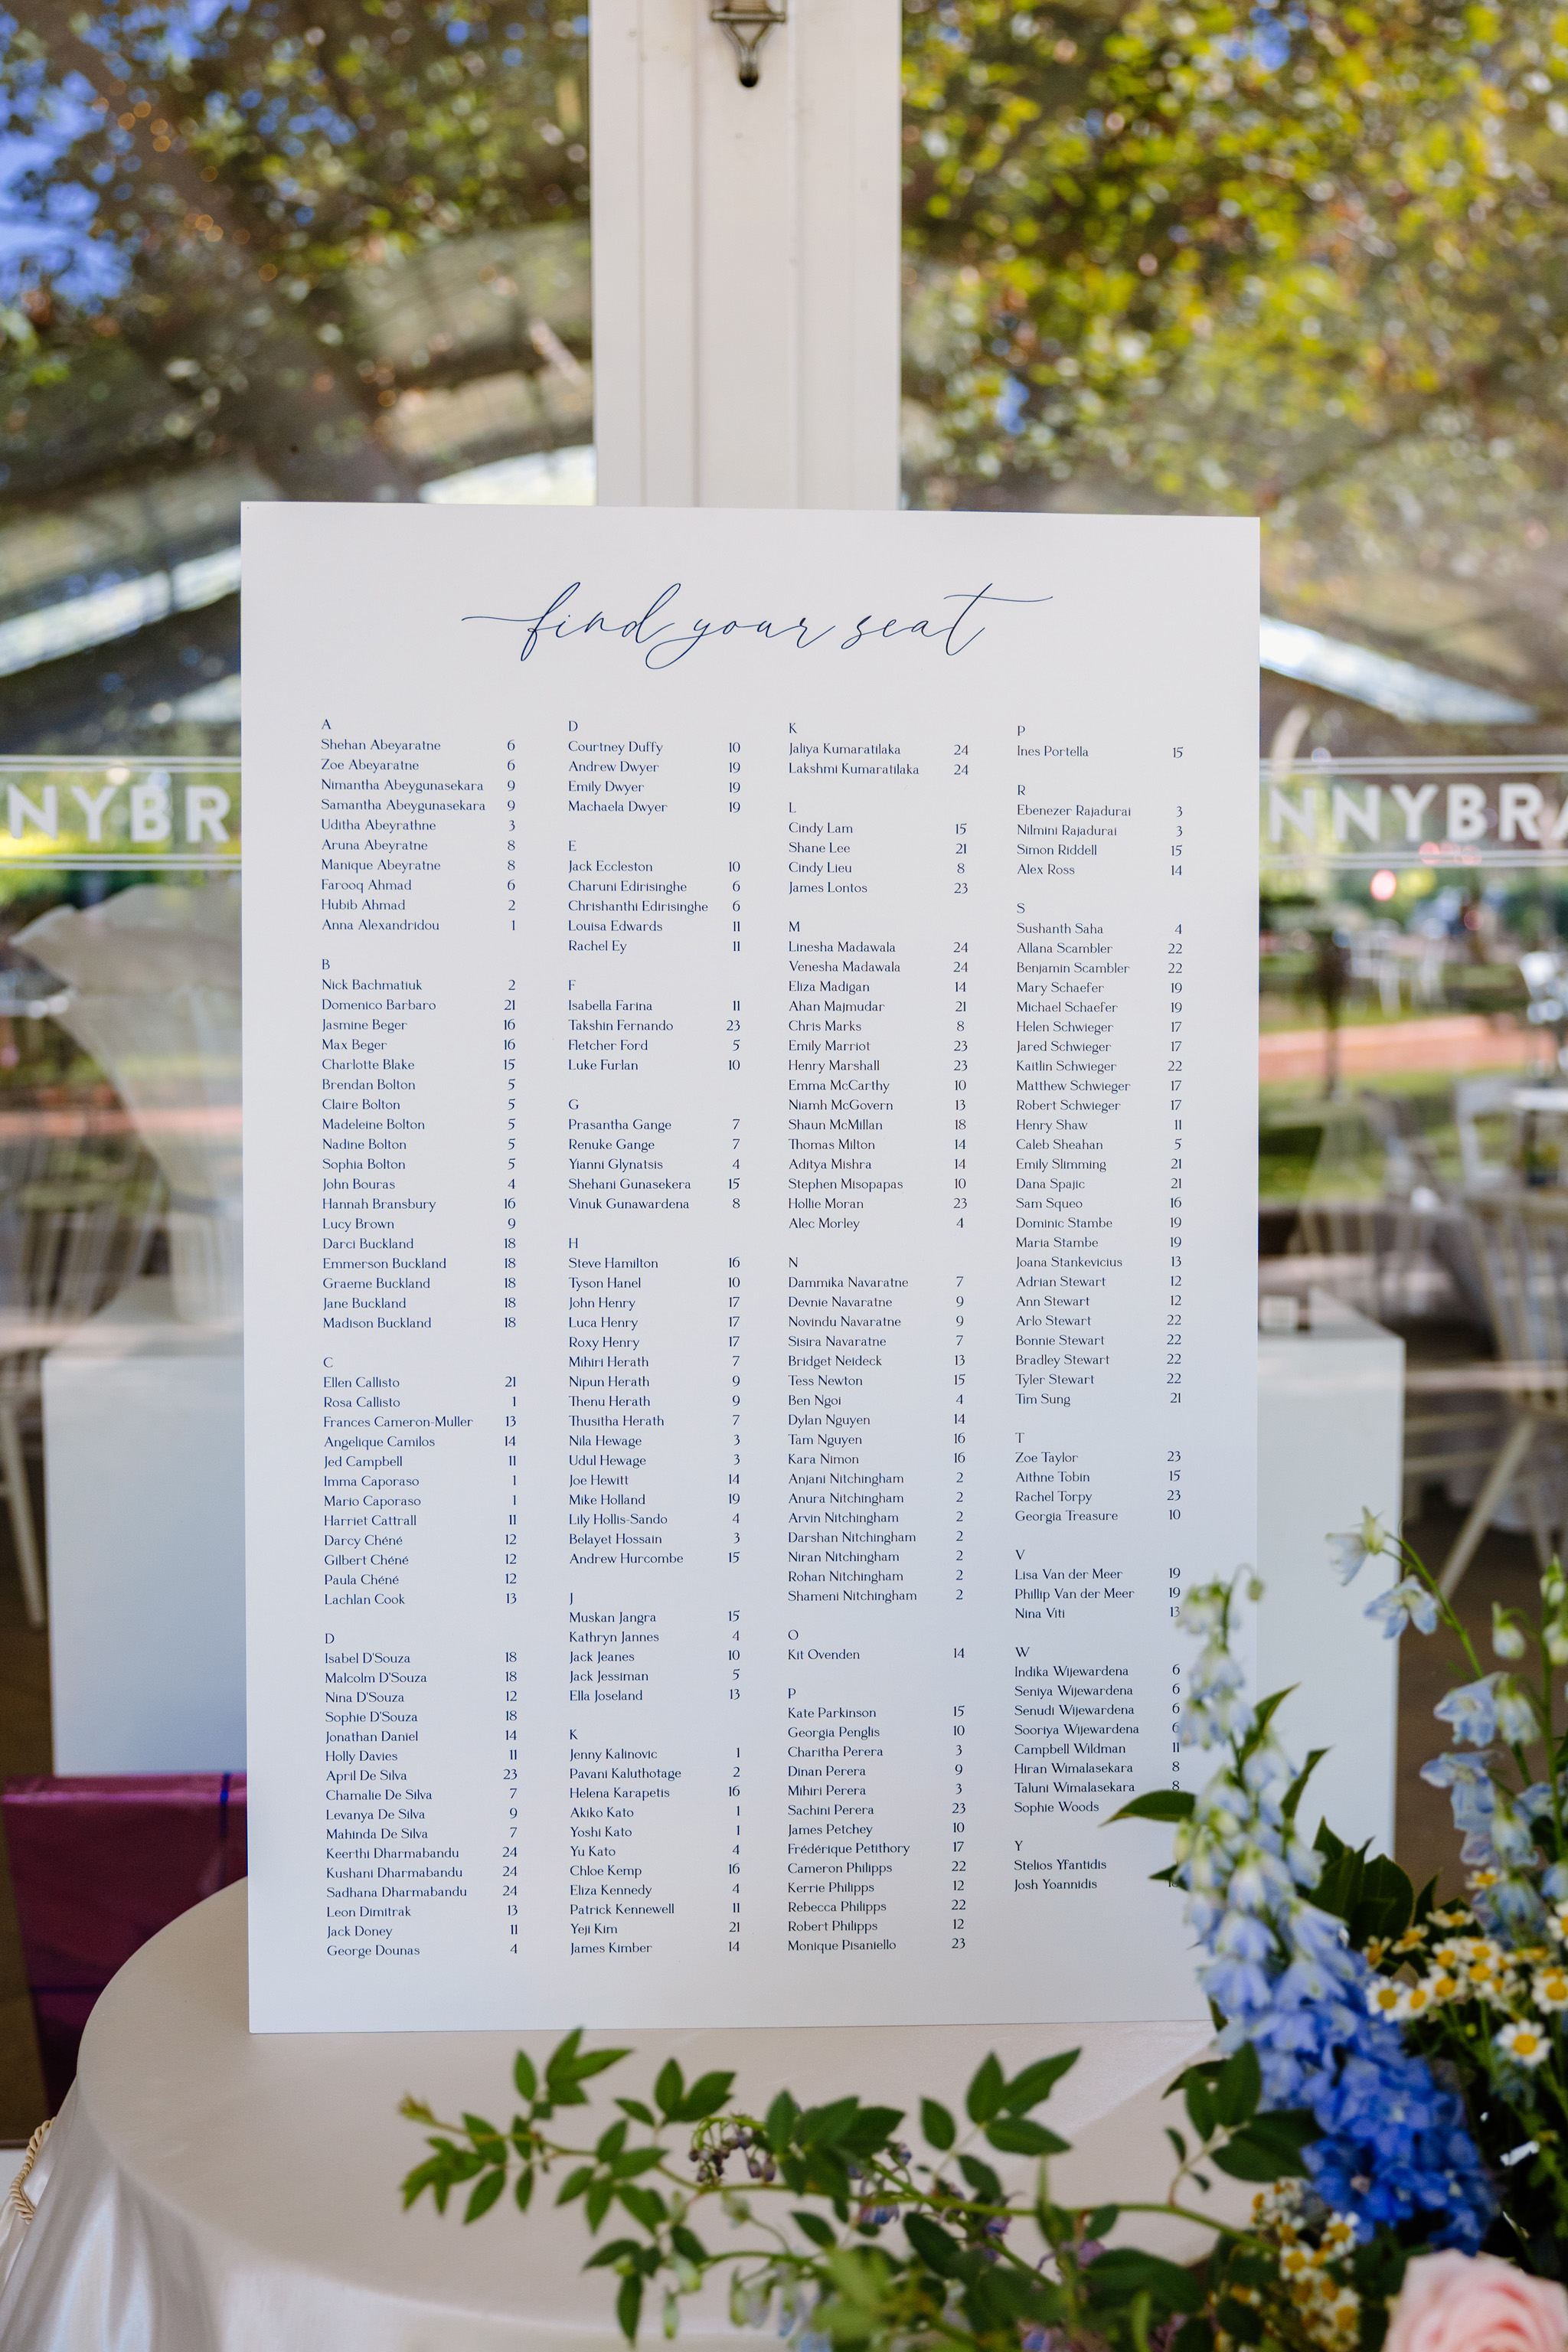 find your seat
A
Shehan Abeyaratne 6
Zoe Abeyaratne 6
Nimantha Abeygunasekara 9
Samantha Abeygunasekara 9
Uditha Abeyrathne 3
Aruna Abeyratne 8
Manique Abeyratne 8
Farooq Ahmad 6
Hubib Ahmad 2
Anna Alexandridou 1
B
Nick Bachmatiuk 2
Domenico Barbaro 21
Jasmine Beger 16
Max Beger 16
Charlotte Blake 15
Brendan Bolton 5
Claire Bolton 5
Madeleine Bolton 5
Nadine Bolton 5
Sophia Bolton 5
John Bouras 4
Hannah Bransbury 16
Lucy Brown 9
Darci Buckland 18
Emmerson Buckland 18
Graeme Buckland 18
Jane Buckland 18
Madison Buckland 18
C
Ellen Callisto 21
Rosa Callisto 1
Frances Cameron-Muller 13
Angelique Camilos 14
Jed Campbell 11
Imma Caporaso 1
Mario Caporaso 1
Harriet Cattrall 11
Darcy Chéné 12
Gilbert Chéné 12
Paula Chéné 12
Lachlan Cook 13
D
Isabel D'Souza 18
Malcolm D'Souza 18
Nina D'Souza 12
Sophie D'Souza 18
Jonathan Daniel 14
Holly Davies 11
April De Silva 23
Chamalie De Silva 7
Levanya De Silva 9
Mahinda De Silva 7
Keerthi Dharmabandu 24
Kushani Dharmabandu 24
Sadhana Dharmabandu 24
Leon Dimitrak 13
Jack Doney 11
George Dounas 4
D
Courtney Duffy 10
Andrew Dwyer 19
Emily Dwyer 19
Machaela Dwyer 19
E
Jack Eccleston 10
Charuni Edirisinghe 6
Chrishanthi Edirisinghe 6
Louisa Edwards 11
Rachel Ey 11
F
Isabella Farina 11
Takshin Fernando 23
Fletcher Ford 5
Luke Furlan 10
G
Prasantha Gange 7
Renuke Gange 7
Yianni Glynatsis 4
Shehani Gunasekera 15
Vinuk Gunawardena 8
H
Steve Hamilton 16
Tyson Hanel 10
John Henry 17
Luca Henry 17
Roxy Henry 17
Mihiri Herath 7
Nipun Herath 9
Thenu Herath 9
Thusitha Herath 7
Nila Hewage 3
Udul Hewage 3
Joe Hewitt 14
Mike Holland 19
Lily Hollis-Sando 4
Belayet Hossain 3
Andrew Hurcombe 15
J
Muskan Jangra 15
Kathryn Jannes 4
Jack Jeanes 10
Jack Jessiman 5
Ella Joseland 13
K
Jenny Kalinovic 1
Pavani Kaluthotage 2
Helena Karapetis 16
Akiko Kato 1
Yoshi Kato 1
Yu Kato 4
Chloe Kemp 16
Eliza Kennedy 4
Patrick Kennewell 11
Yeji Kim 21
James Kimber 14
K
Jaliya Kumaratilaka 24
Lakshmi Kumaratilaka 24
L
Cindy Lam 15
Shane Lee 21
Cindy Lieu 8
James Lontos 23
M
Linesha Madawala 24
Venesha Madawala 24
Eliza Madigan 14
Ahan Majmudar 21
Chris Marks 8
Emily Marriot 23
Henry Marshall 23
Emma McCarthy 10
Niamh McGovern 13
Shaun McMillan 18
Thomas Milton 14
Aditya Mishra 14
Stephen Misopapas 10
Hollie Moran 23
Alec Morley 4
N
Dammika Navaratne 7
Devnie Navaratne 9
Novindu Navaratne 9
Sisira Navaratne 7
Bridget Neideck 13
Tess Newton 15
Ben Ngoi 4
Dylan Nguyen 14
Tam Nguyen 16
Kara Nimon 16
Anjani Nitchingham 2
Anura Nitchingham 2
Arvin Nitchingham 2
Darshan Nitchingham 2
Niran Nitchingham 2
Rohan Nitchingham 2
Shameni Nitchingham 2
O
Kit Ovenden 14
P
Kate Parkinson 15
Georgia Penglis 10
Charitha Perera 3
Dinan Perera 9
Mihiri Perera 3
Sachini Perera 23
James Petchey 10
Frédérique Petithory 17
Cameron Philipps 22
Kerrie Philipps 12
Rebecca Philipps 22
Robert Philipps 12
Monique Pisaniello 23
P
Ines Portella 15
R
Ebenezer Rajadurai 3
Nilmini Rajadurai 3
Simon Riddell 15
Alex Ross 14
S
Sushanth Saha 4
Allana Scambler 22
Benjamin Scambler 22
Mary Schaefer 19
Michael Schaefer 19
Helen Schwieger 17
Jared Schwieger 17
Kaitlin Schwieger 22
Matthew Schwieger 17
Robert Schwieger 17
Henry Shaw 11
Caleb Sheahan 5
Emily Slimming 21
Dana Spajic 21
Sam Squeo 16
Dominic Stambe 19
Maria Stambe 19
Joana Stankevicius 13
Adrian Stewart 12
Ann Stewart 12
Arlo Stewart 22
Bonnie Stewart 22
Bradley Stewart 22
Tyler Stewart 22
Tim Sung 21
T
Zoe Taylor 23
Aithne Tobin 15
Rachel Torpy 23
Georgia Treasure 10
V
Lisa Van der Meer 19
Phillip Van der Meer 19
Nina Viti 13
W
Indika Wijewardena 6
Seniya Wijewardena 6
Senudi Wijewardena 6
Sooriya Wijewardena 6
Campbell Wildman 11
Hiran Wimalasekara 8
Taluni Wimalasekara 8
Sophie Woods
Y
Stelios Yfantidis
Josh Yoannidis
NYBR
NNYBRA